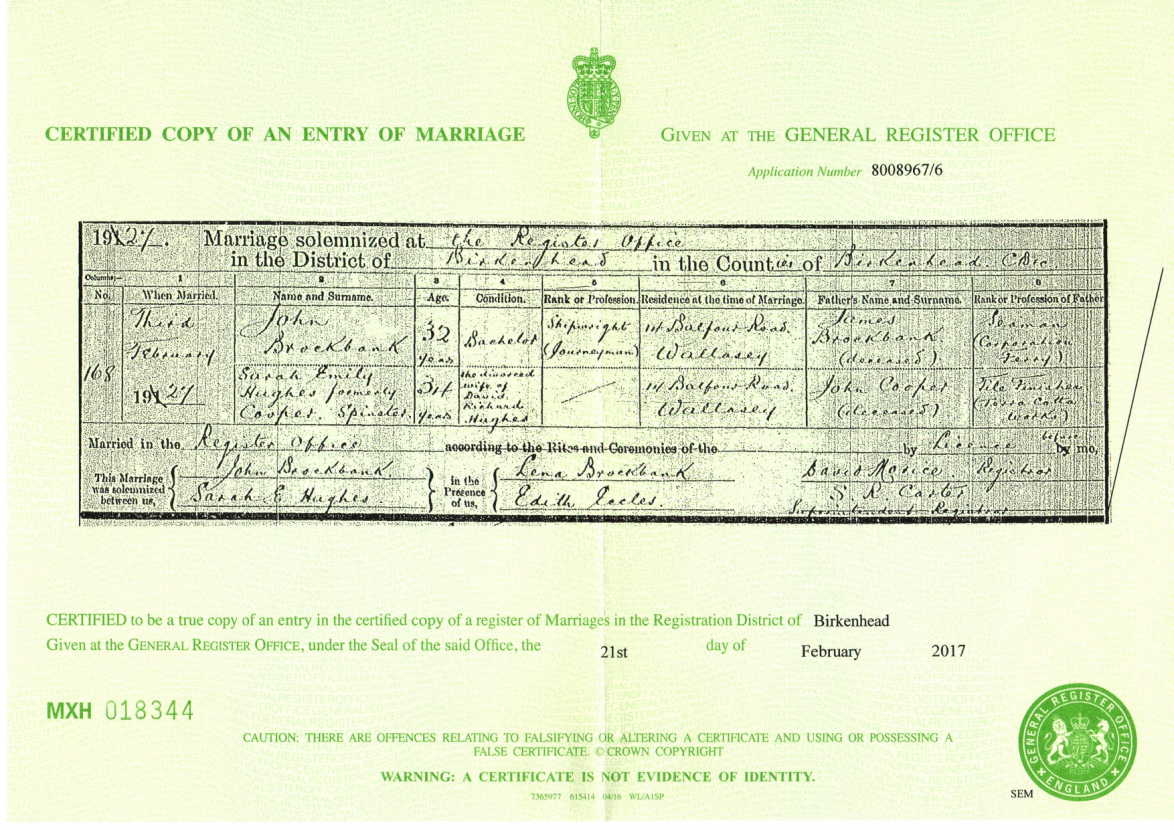 CERTIFIED COPY OF AN ENTRY OF MARRIAGE
GIVEN AT THE GENERAL REGISTER OFFICE
Application Number 8008967/6
1927. Marriage solemnized at the Register Office
in the District of Birkenhead in the Counties of Birkenhead. C.B. &c.
Columns:— 1 2 3 4 5 6 7 8
No. When Married. Name and Surname. Age. Condition. Rank or Profession. Residence at the time of Marriage. Father's Name and Surname. Rank or Profession of Father
168
Third
February
1927
John
Brockbank
32
years
Bachelor
Shipwright
(Journeyman)
14 Balfour Road.
Wallasey
James
Brockbank
(deceased).
Seaman
(Corporation
Ferry)
Sarah Emily
Hughes formerly
Cooper. Spinster.
34
years
the divorced
wife of
David
Richard
Hughes
14 Balfour Road.
Wallasey
John Cooper
(deceased)
Tile Finisher
(Terra Cotta
Works)
Married in the Register Office according to the Rites and Ceremonies of the by Licence before by me,
This Marriage
was solemnized
between us,
John Brockbank.
Sarah E Hughes.
in the
Presence
of us,
Lena Brockbank
Edith Eccles.
David Morice Registrar
S. R. Carter
Superintendent Registrar
CERTIFIED to be a true copy of an entry in the certified copy of a register of Marriages in the Registration District of Birkenhead
Given at the GENERAL REGISTER OFFICE, under the Seal of the said Office, the 21st day of February 2017
MXH 018344
CAUTION: THERE ARE OFFENCES RELATING TO FALSIFYING OR ALTERING A CERTIFICATE AND USING OR POSSESSING A
FALSE CERTIFICATE. © CROWN COPYRIGHT
WARNING: A CERTIFICATE IS NOT EVIDENCE OF IDENTITY.
7365977 615414 04/16 WL/A1SP
GENERAL REGISTER OFFICE
ENGLAND
SEM